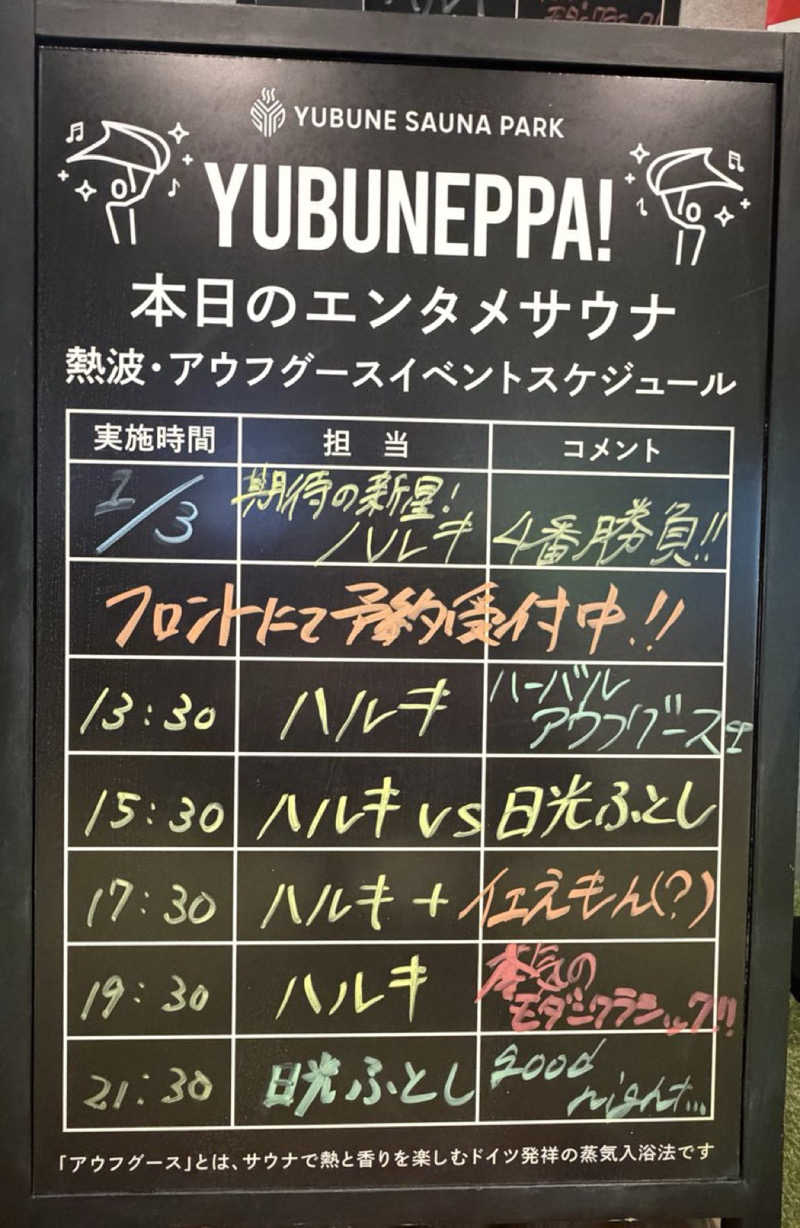 YUBUNE SAUNA PARK
YUBUNEPPA!
本日のエンタメサウナ
熱波・アウフグースイベントスケジュール
実施時間 担当 コメント
1/3 期待の新星!
ハルキ 4番勝負!!
フロントにて予約受付中!!
13:30 ハルキ ハーバル
アウフグース
15:30 ハルキ vs 日光ふとし
17:30 ハルキ + えもん(?)
19:30 ハルキ 本気の
モダンクラシック!!
21:30 日光ふとし good
night...
「アウフグース」とは、サウナで熱と香りを楽しむドイツ発祥の蒸気入浴法です